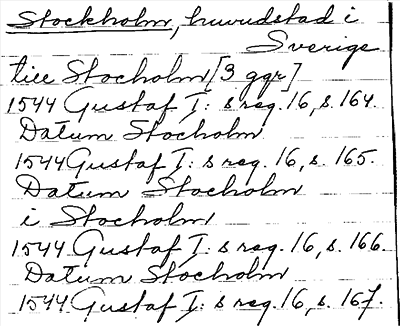 Stockholm, huvudstad i
Sverige
till Stocholm [3 ggr]
1544 Gustaf I: s reg. 16, s. 164.
Datum Stocholm
1544 Gustaf I: s reg. 16, s. 165.
Datum Stocholm
i Stocholm
1544 Gustaf I: s reg. 16, s. 166.
Datum Stocholm
1544 Gustaf I: s reg. 16, s. 167.